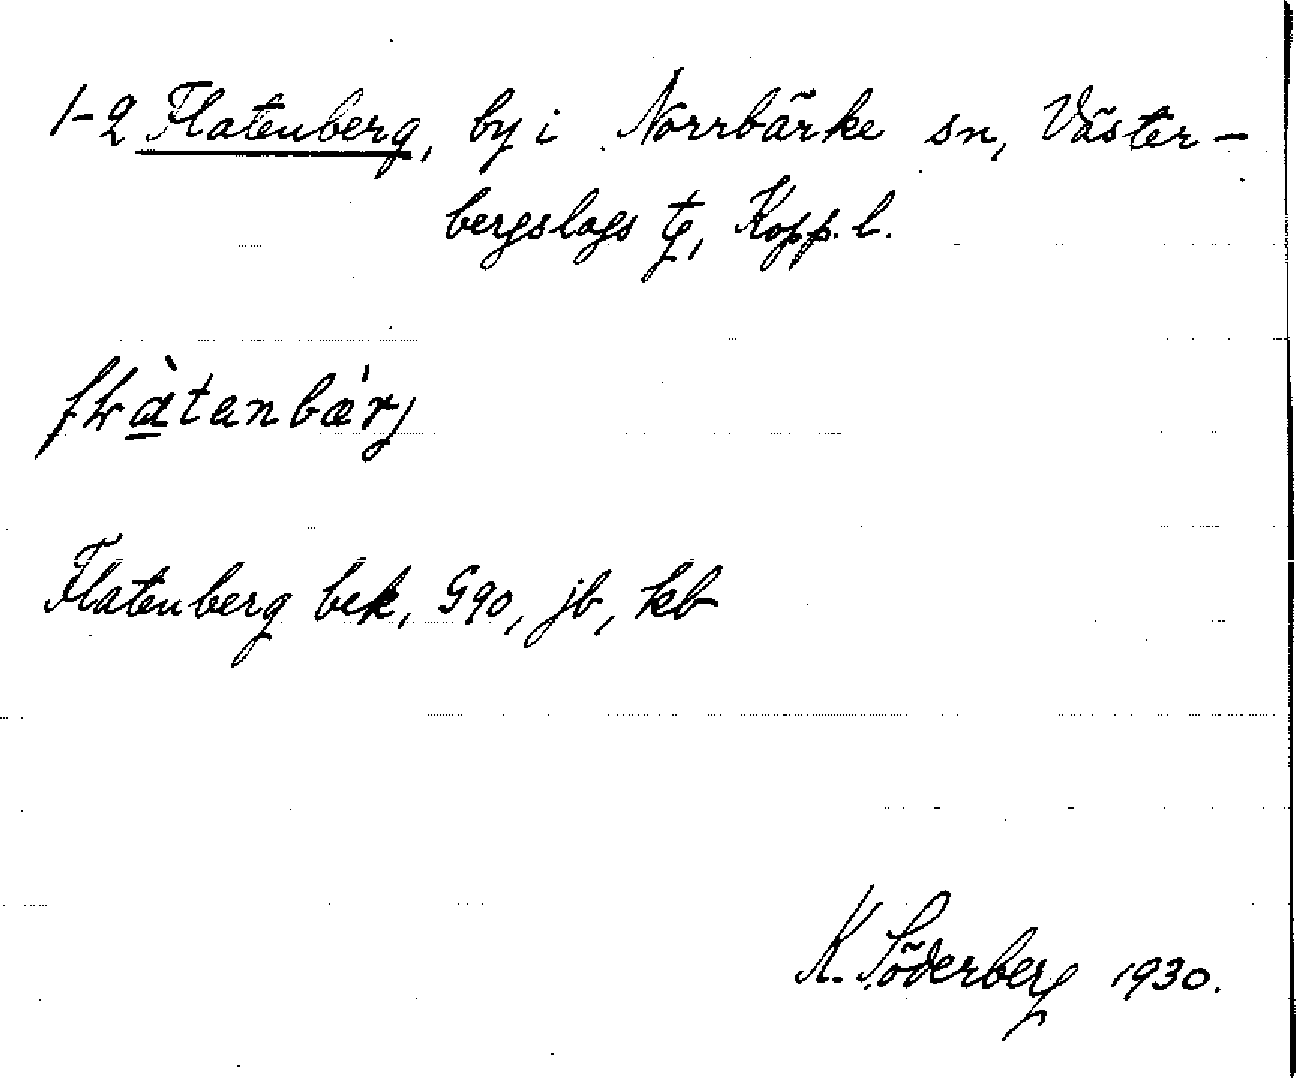 1-2 Flatenberg, by i Norrbärke sn, Väster-
bergslags tg, Kopp. l.
fł̀atenbæ̀rj
Flatenberg bek, G90, jb, kb
K. Söderberg 1930.